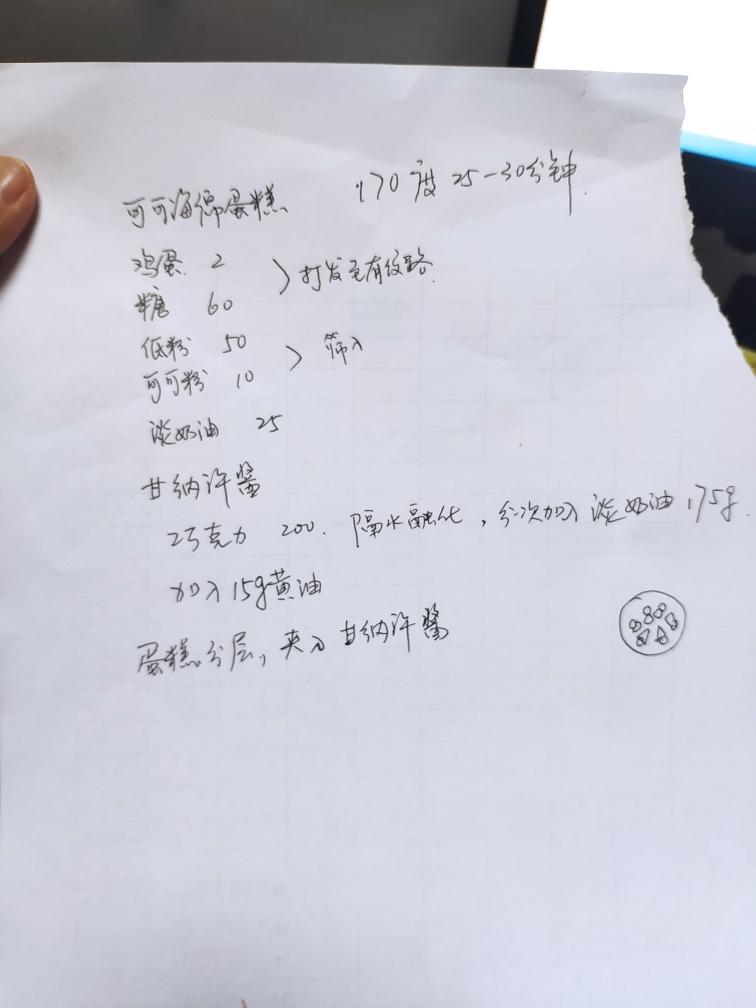 可可海绵蛋糕 170度 25-30分钟
鸡蛋 2 > 打发至有纹路
糖 60
低粉 50 > 筛入
可可粉 10
淡奶油 25
甘纳许酱
巧克力 200. 隔水融化, 分次加入 淡奶油 175g.
加入15g黄油
蛋糕分层, 夹入 甘纳许酱